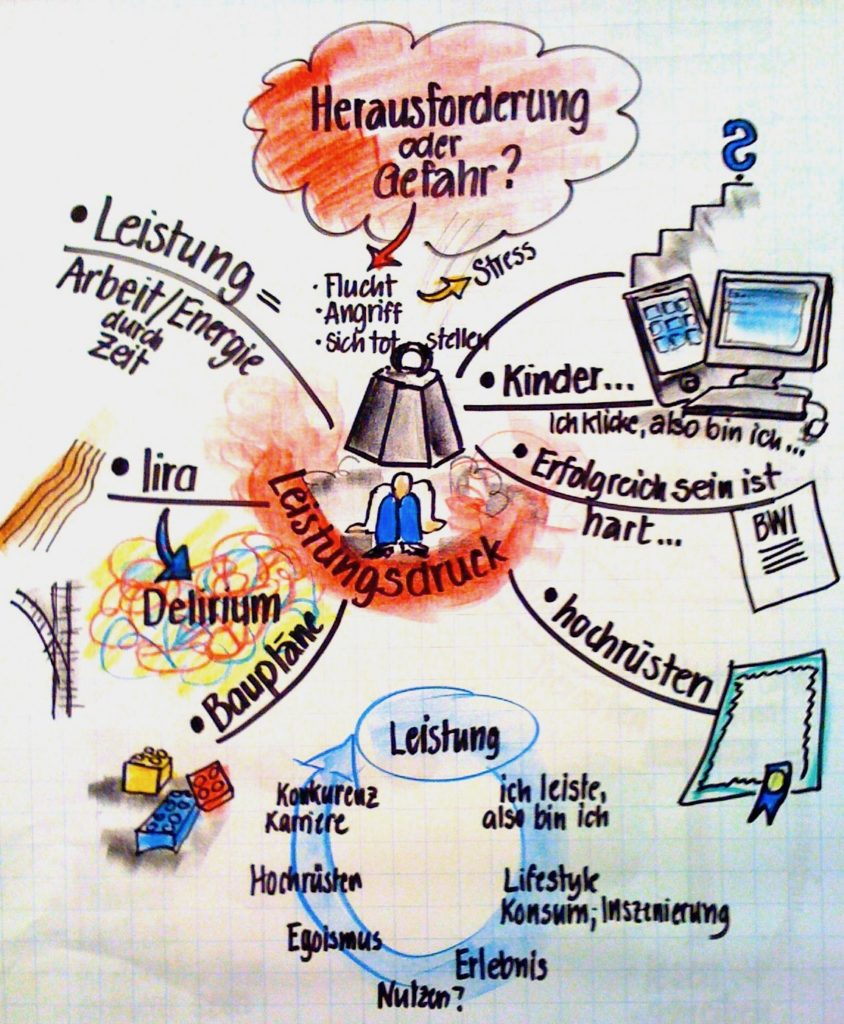 Herausforderung
oder
Gefahr?
• Leistung =
Arbeit/Energie
durch
Zeit
• Flucht
• Angriff
• sich tot stellen
Stress
?
• Kinder...
Ich klicke, also bin ich...
• Erfolgreich sein ist
hart...
BWI
• lira
Delirium
Leistungsdruck
• Baupläne
• hochrüsten
Leistung
ich leiste,
also bin ich
Lifestyle
Konsum; Inszenierung
Erlebnis
Nutzen?
Egoismus
Hochrüsten
Konkurenz
Karriere